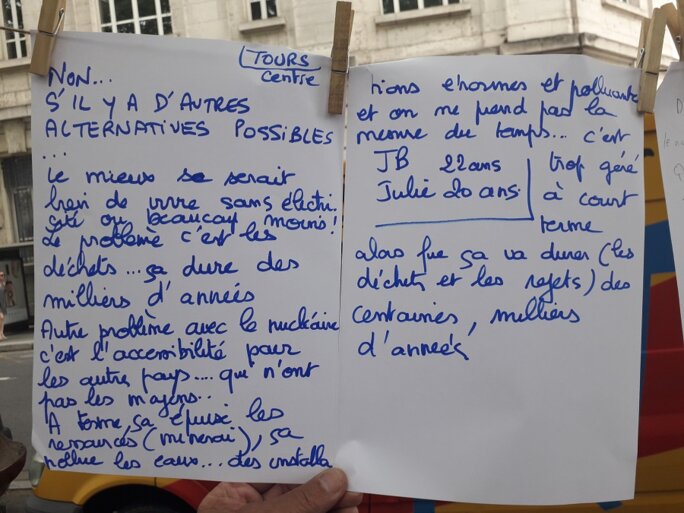 TOURS
centre
NON...
S'IL Y A D'AUTRES
ALTERNATIVES POSSIBLES
...
Le mieux se serait
bien de vivre sans électri-
cité ou beaucoup moins!
Le problème c'est les
déchets... ça dure des
milliers d'années
Autre problème avec le nucléaire
c'est l'accessibilité pour
les autres pays.... qui n'ont
pas les moyens..
A terme ça épuise les
ressources (minerai), ça
pollue les eaux... des installa
tions énormes et polluante
et on ne prend pas la
mesure du temps... c'est
trop géré
à court
terme
JB 22ans
Julie 20 ans
alors que ça va durer (les
déchets et les rejets) des
centaines, milliers
d'années